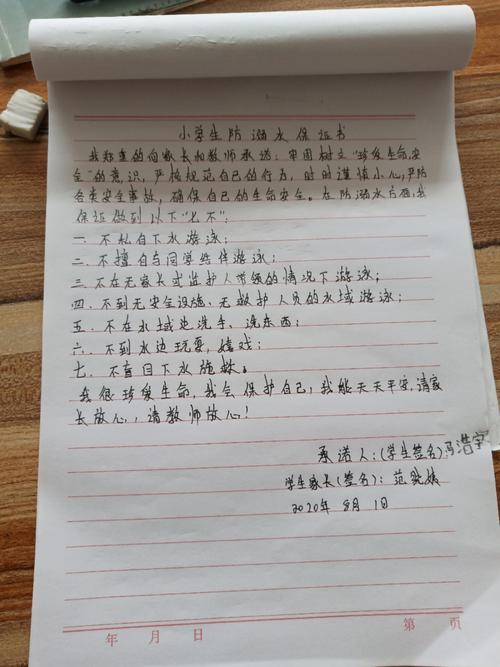 小学生防溺水保证书
我郑重的向家长和教师承诺：牢固树立“珍爱生命，安
全”的意识，严格规范自己的行为，时时谨慎小心，严防
各类安全事故，确保自己的生命安全。在防溺水方面，我
保证做到以下“七不”：
一、不私自下水游泳；
二、不擅自与同学结伴游泳；
三、不在无家长或监护人带领的情况下游泳；
四、不到无安全设施、无救护人员的水域游泳；
五、不在水域边洗手、洗东西；
六、不到水边玩耍，嬉戏；
七、不盲目下水施救。
我很珍爱生命，我会保护自己；我能天天平安，请家
长放心，请教师放心！
承诺人：（学生签名）冯浩宇
学生家长（签名）：范
2020年8月1日
年 月 日 第 页